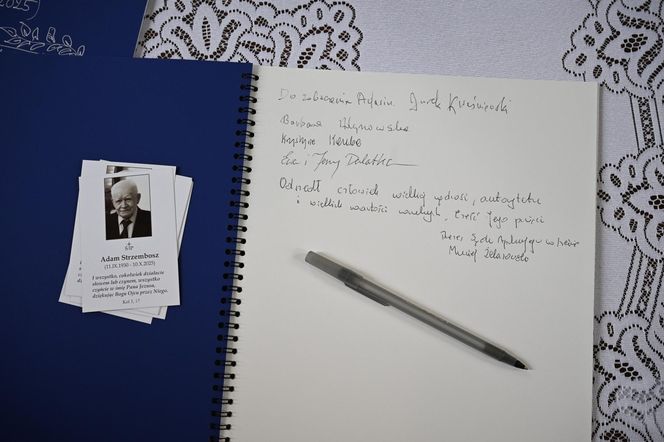 2025
Do zobaczenia Adasiu Jurek
Barbara
Krystyna
Ewa i Jerzy
Odszedł człowiek wielkiej mądrości, autorytetu
i wielkich wartości moralnych. Cześć Jego pamięci
Prezes Sądu Apelacyjnego w
ŚP
Adam Strzembosz
(11.IX 1930 - 10.X.2025)
I wszystko, cokolwiek działacie
słowem lub czynem, wszystko
czyńcie w imię Pana Jezusa,
dziękując Bogu Ojcu przez Niego.
Kol 3, 17